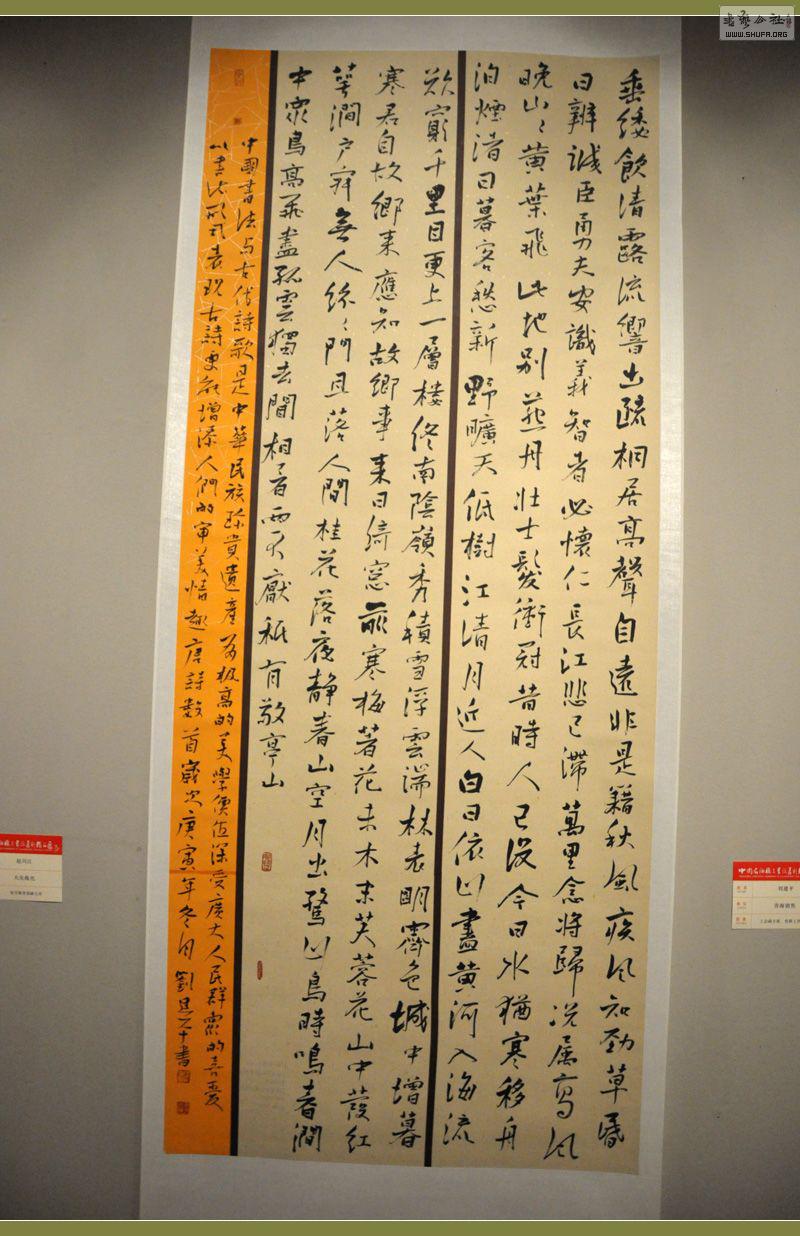 垂緌飲清露流響出疏桐居高聲自遠非是籍秋風疾風知勁草昏
日辨誠臣勇夫安識義智者必懷仁長江悲已滯萬里念將歸况屬高風
晚山〻黄葉飛此地别燕丹壯士髮衝冠昔時人已没今日水猶寒移舟
泊煙渚日暮客愁新野曠天低樹江清月近人白日依山盡黄河入海流
欲窮千里目更上一層樓終南陰嶺秀積雪浮雲端林表明霽色城中增暮
寒君自故鄉来應知故鄉事来日綺窓前寒梅著花未木末芙蓉花山中發紅
萼澗户寂無人絲〻開且落人間桂花落夜静春山空月出驚山鳥時鳴春澗
中衆鳥高飛盡孤雲獨去閒相看两不厭祇有敬亭山
中國書法与古代詩歌是中華民族珍貴遺産有极高的美學價值深受廣大人民群衆的喜愛
以書法形式表现古詩更能增添人們的审美情趣唐詩數首歲次庚寅年冬月劉書
书艺公社
WWW.SHUFA.ORG